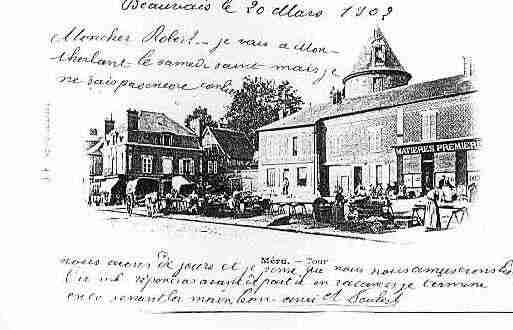 Beauvais le 20 Mars 1903
Mon cher Robert - je vais a Mon-
therlant le samedi saint mais je
ne sais pas encore combien
MATIERES PREMIER
Méru. - Tour
nous aurons de jours et je pense que nous nous amuserons
Tu me répondras avant départ en vacances je termine
en te serrant la main ton ami